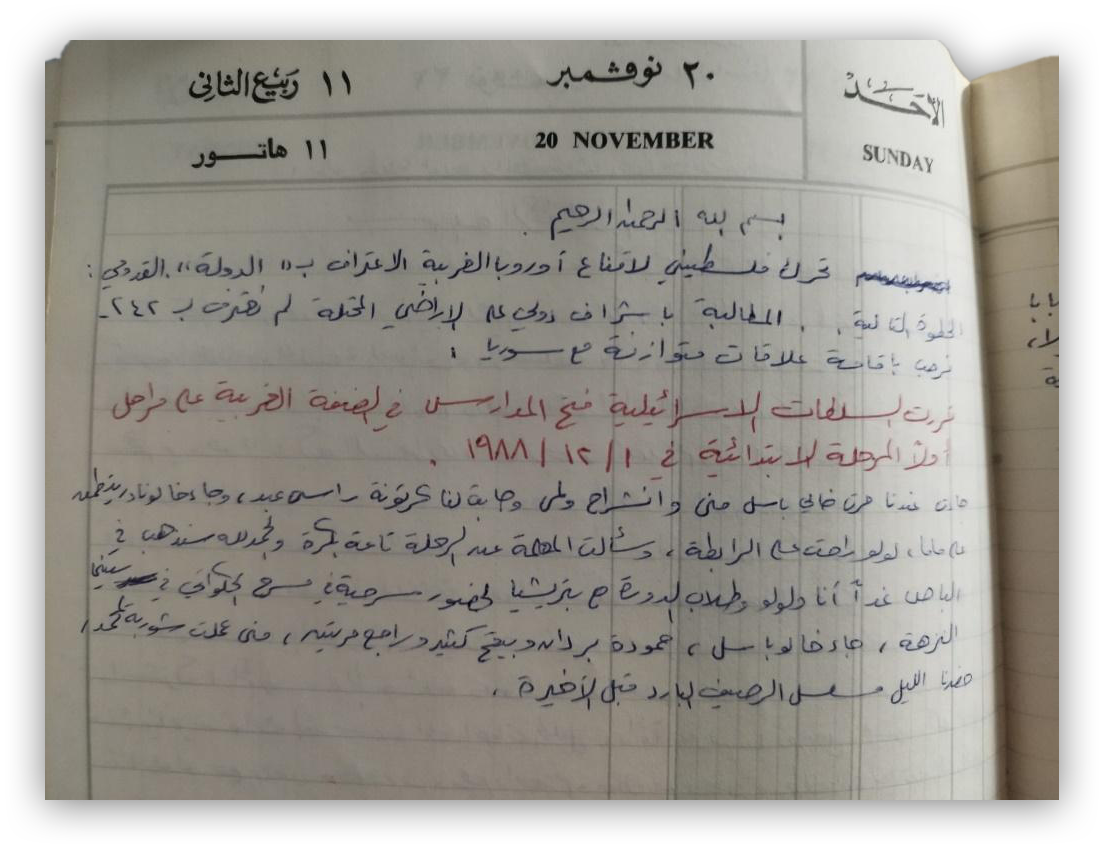 الأحد
SUNDAY
٢٠ نوفمبر
20 NOVEMBER
١١ ربيع الثاني
١١ هاتور
بسم الله الرحمن الرحيم .
تحرك فلسطيني لاقناع أوروبا الغربية الاعتراف ب "الدولة". القدومي :
الخطوة التالية . . المطالبة باشراف دولي على الاراضي المحتلة لم نعترف ب ٢٤٢ -
نرحب باقامة علاقات متوازنة مع سوريا .
قررت السلطات الاسرائيلية فتح المدارس في الضفة الغربية على مراحل
أولاً المرحلة الابتدائية في ١ / ١٢ / ١٩٨٨ .
عندنا مرت خالي باسل منى وانشراح ولمى وجابت لنا كرتونة راس عبد ، وجاء خالو نادر
على ماما ، لولو راحت على الرابطة ، وسألت المعلمة عن الرحلة تاعة بكرة والحمدلله سنذهب في
الباص غداً أنا ولولو وطلاب الدورة مع بتريشيا لحضور مسرحية في مسرح الحكواتي في سينما
النزهة ، جاء خالو باسل ، حمودة بردان وبيقح كثير وراجع مرتين ، منى عملت شوربة
حضرنا الليل مسلسل الرصيف البارد قبل الأخيرة .